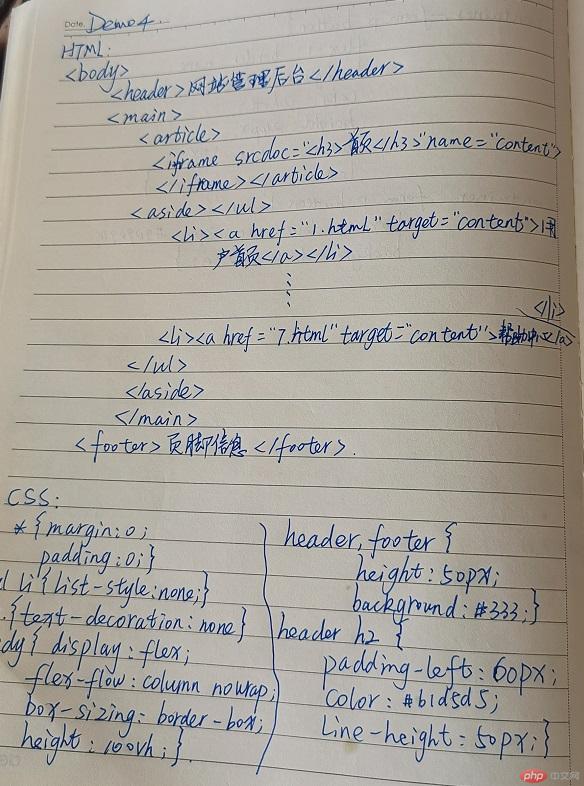 Date. Demo4.
HTML:
<body>
<header>网站管理后台</header>
<main>
<article>
<iframe srcdoc="<h3>首页</h3>" name="content">
</iframe></article>
<aside></ul>
<li><a href="1.html" target="content">用
户首页</a></li>
</li>
<li><a href="7.html" target="content">帮助中心</a>
</ul>
</aside>
</main>
<footer>页脚信息</footer>.
CSS:
*{margin:0;
padding:0;}
li{list-style:none;}
{text-decoration:none}
dy{display:flex;
flex-flow:column nowrap;
box-sizing:border-box;
height:100vh;}
header,footer{
height:50px;
background:#333;}
header h2{
padding-left:60px;
color:#b1d5d5;
line-height:50px;}
php 中文网